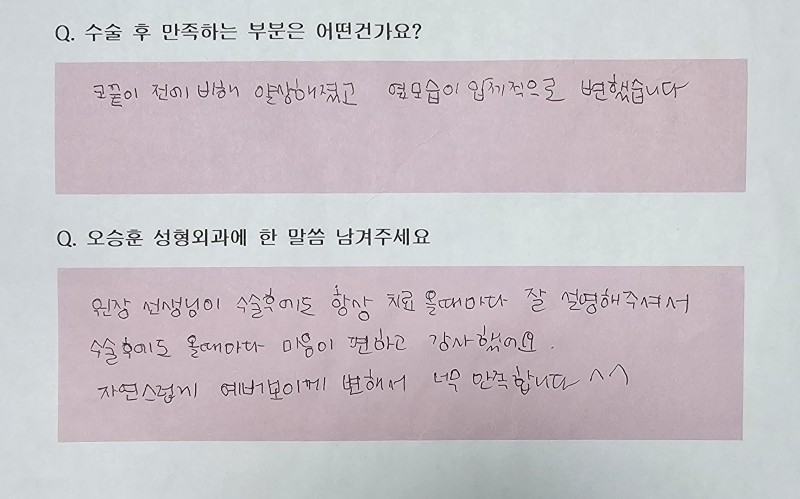 Q. 수술 후 만족하는 부분은 어떤건가요?
코끝이 전에 비해 얄상해졌고 옆모습이 입체적으로 변했습니다
Q. 오승훈 성형외과에 한 말씀 남겨주세요
원장 선생님이 수술후에도 항상 치료 올때마다 잘 설명해주셔서
수술후에도 올때마다 마음이 편하고 감사했어요.
자연스럽게 예뻐보이게 변해서 너무 만족합니다 ^^